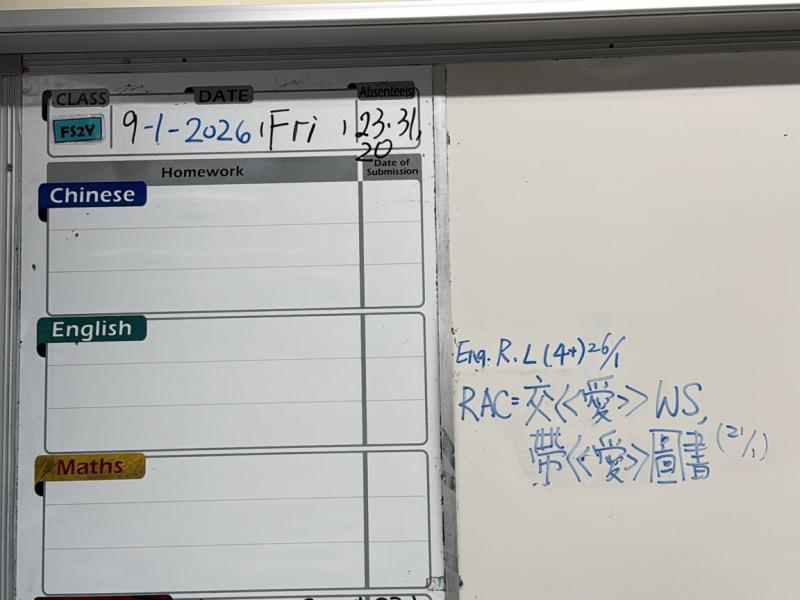 CLASS DATE Absentee(s)
FS2Y 9-1-2026, Fri , 23.31,
20
Homework Date of Submission
Chinese
English
Maths
Eng. R. L (4+) 26/1
RAC= 交<<愛>> WS,
帶<<愛>>圖書 (21/1)